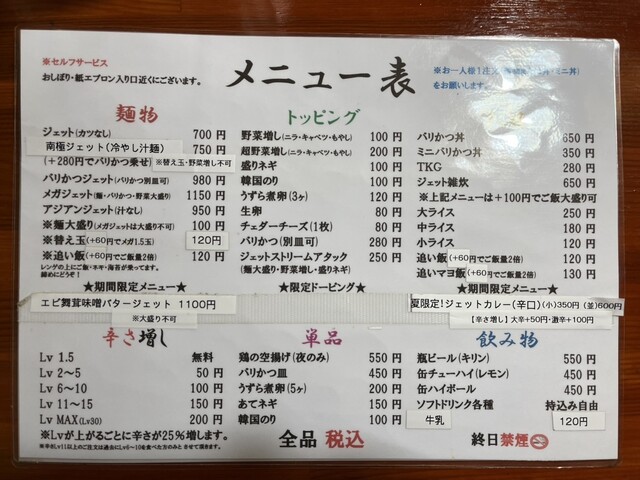 ※セルフサービス
おしぼり・紙エプロン入り口近くにございます。
メニュー表
※お一人様1注文
をお願いします。
麺物
ジェット(カツなし) 700円
南極ジェット(冷やし汁麺) 750円
(+280円でバリかつ乗せ) ※替え玉・野菜増し不可
バリかつジェット(バリかつ別皿可) 980円
メガジェット(麺・バリかつ・野菜大盛り) 1150円
アジアンジェット(汁なし) 950円
※麺大盛り(メガジェットは大盛り不可) 100円
※替え玉(+60円でメガ1.5玉) 120円
※追い飯(+60円でご飯量2倍) 120円
レンゲの上にご飯・ネギ・海苔が乗ってます。
締めにどうぞ!
★期間限定メニュー★
エビ舞茸味噌バタージェット 1100円
※大盛り不可
トッピング
野菜増し(ニラ・キャベツ・もやし) 100円
超野菜増し(ニラ・キャベツ・もやし) 200円
盛りネギ 100円
韓国のり 100円
うずら煮卵(3ヶ) 120円
生卵 80円
チェダーチーズ(1枚) 80円
バリかつ(別皿可) 280円
ジェットストリームアタック 250円
(麺大盛り・野菜増し・盛りネギ)
★限定ドーピング★
バリかつ丼 650円
ミニバリかつ丼 350円
TKG 280円
ジェット雑炊 650円
※上記メニューは+100円でご飯大盛り可
大ライス 250円
中ライス 180円
小ライス 120円
追い飯(+60円でご飯量2倍) 120円
追いマヨ飯(+60円でご飯量2倍) 130円
★期間限定メニュー★
夏限定!ジェットカレー(辛口)(小)350円(並)600円
【辛さ増し】大辛+50円・激辛+100円
辛さ増し
Lv 1.5 無料
Lv 2～5 50円
Lv 6～10 100円
Lv 11～15 150円
Lv MAX(Lv30) 200円
※Lvが上がるごとに辛さが25%増します。
※辛さLv11以上のご注文は過去にLv6～10を食べた方のみとさせて頂きます。
単品
鶏の空揚げ(夜のみ) 550円
バリかつ皿 450円
うずら煮卵(5ヶ) 200円
あてネギ 150円
韓国のり 100円
全品 税込
飲み物
瓶ビール(キリン) 550円
缶チューハイ(レモン) 450円
缶ハイボール 450円
ソフトドリンク各種 持込み自由
牛乳 120円
終日禁煙